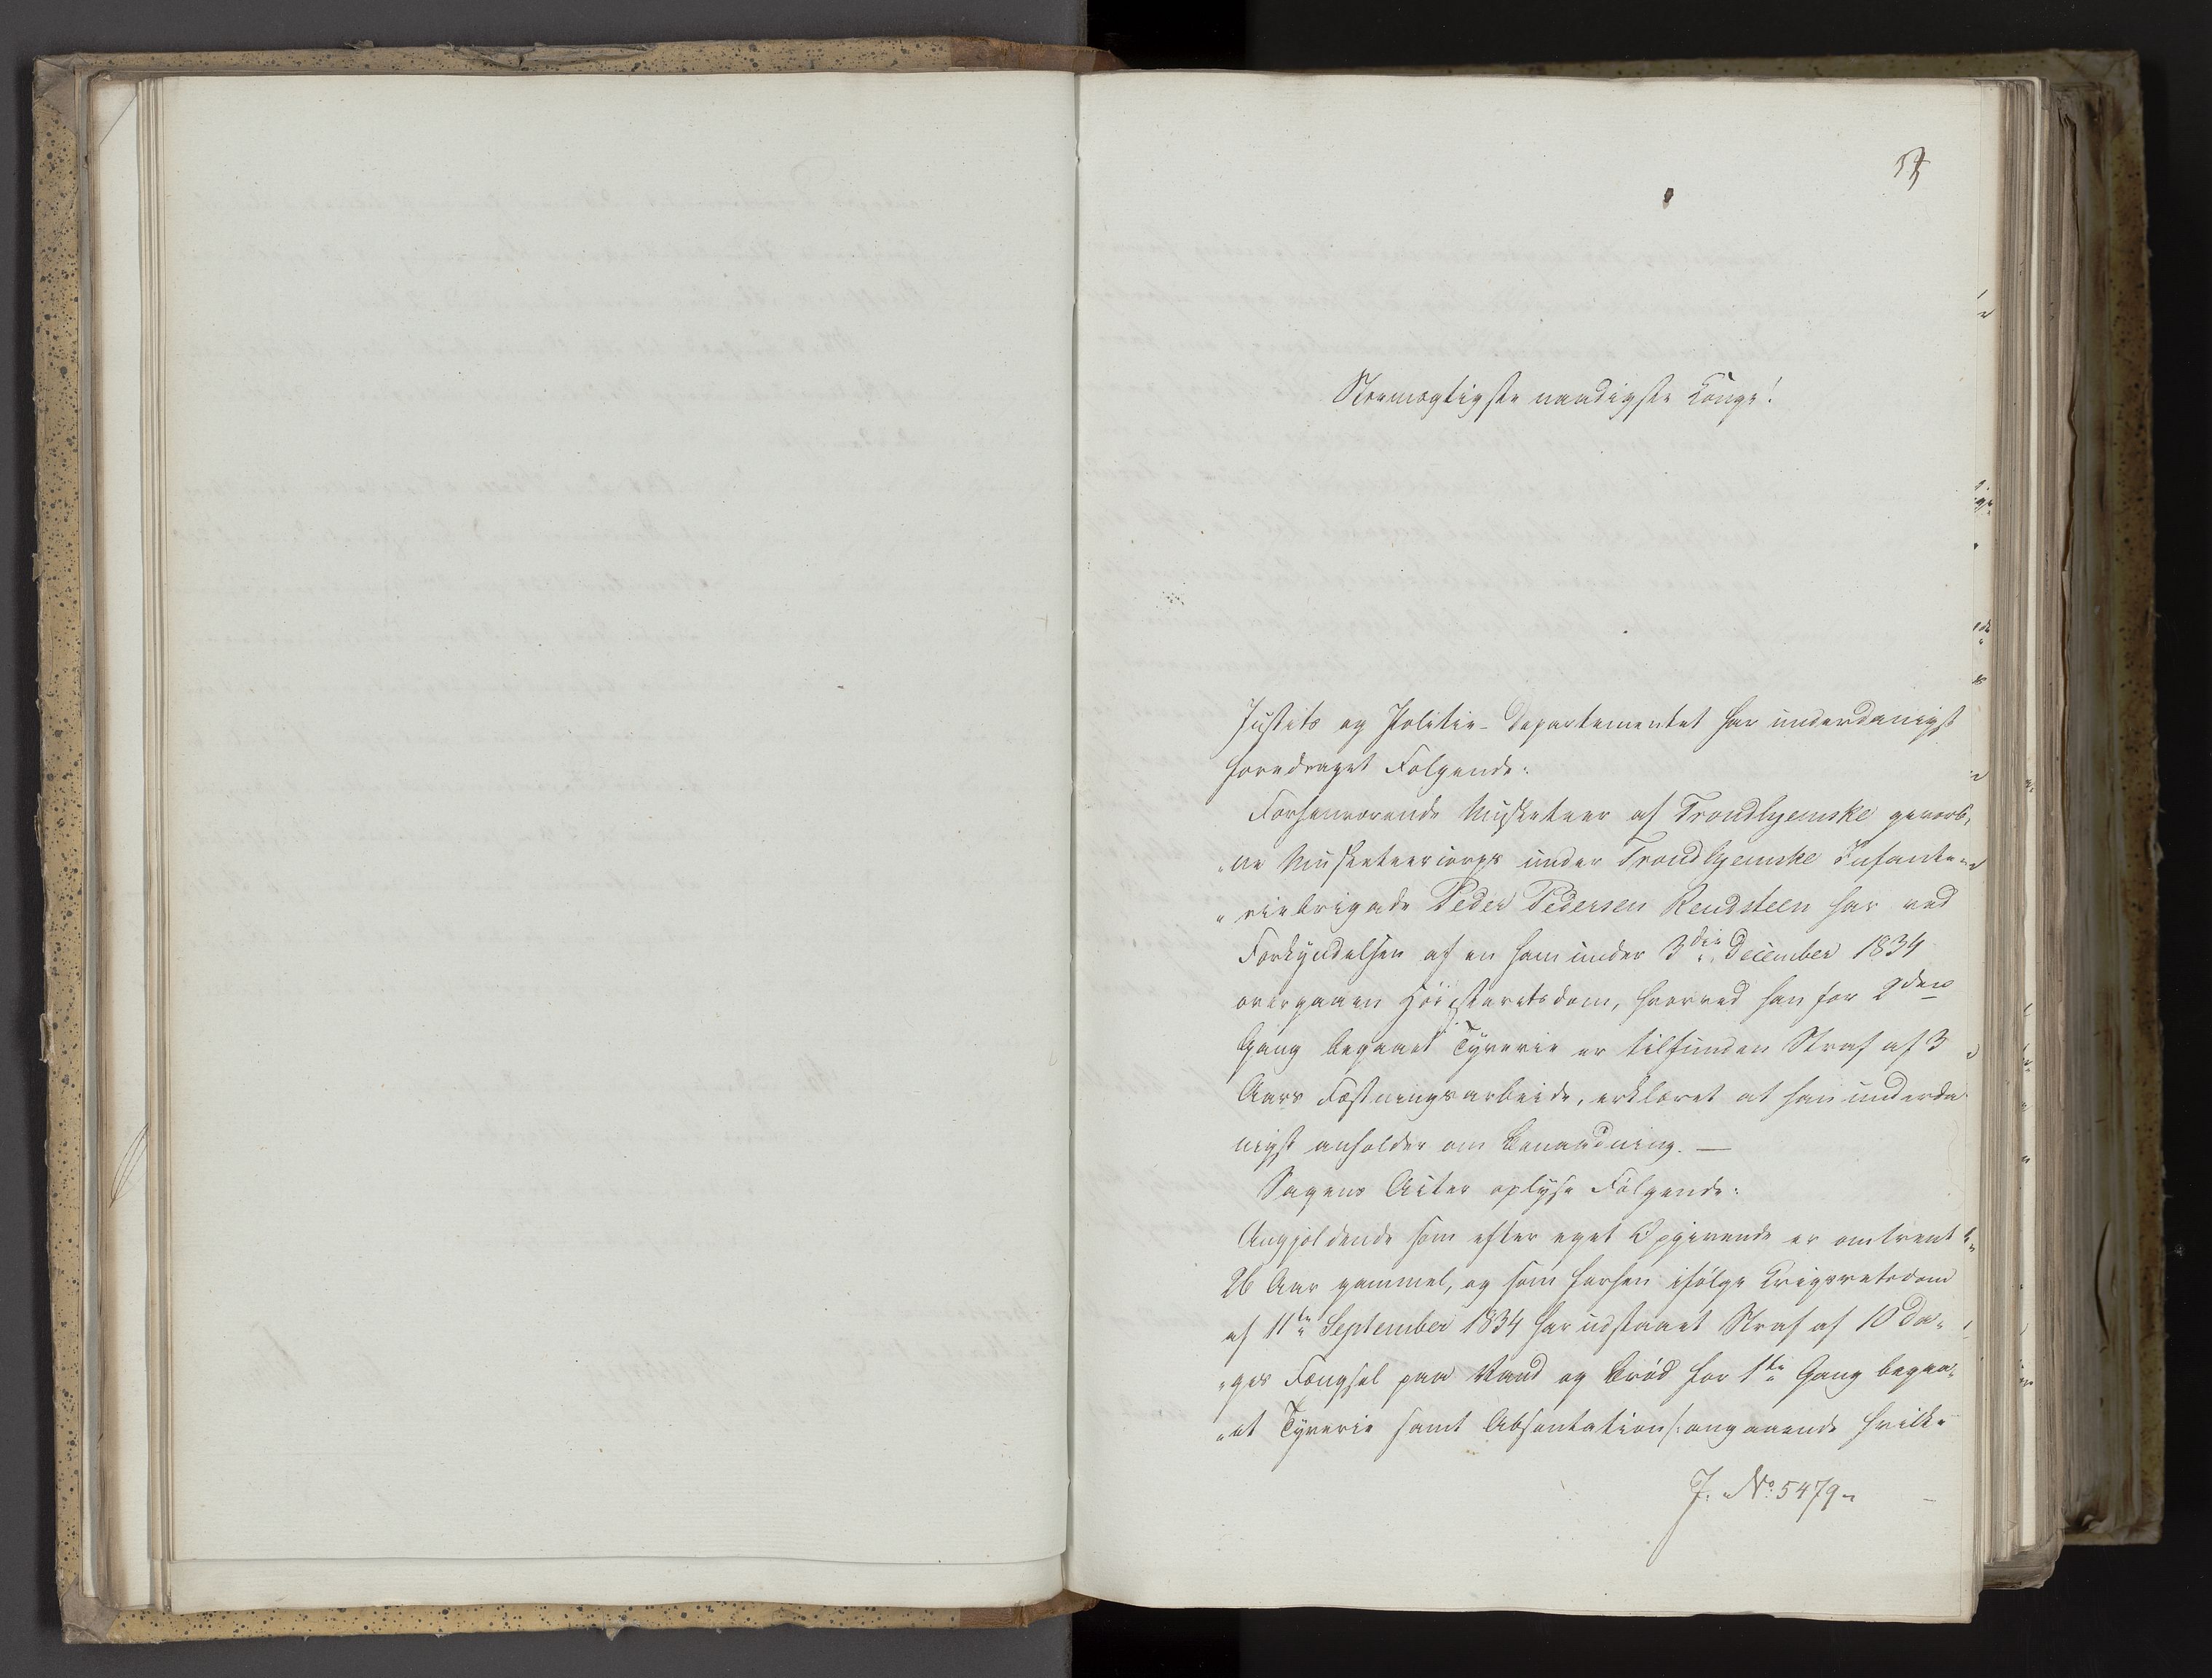 Stormægtigste naadigste Konge!
Justits og Politie-Departementet har underdanigst
foredraget Følgende:
Forhenværende Musketeer af Trondhjemske gevorb,
„ne Musketeercorps under Trondhjemske Infante„
„riebrigade Peder Pedersen Rendsteen har ved
Forkyndelsen af en ham under 3die December 1834
overgaaen Høiesteretsdom, hvorved han for 2den
Gang begaaet Tyverie er tilfunden Straf af 3
Aars Fæstningsarbeide, erklæret at han underda„
nigst anholder om Benaadning. —
Sagens Acter oplyse Følgende:
Angjældende som efter eget Opgivende er omtrent
26 Aar gammel, og som forhen ifølge Krigsretsdom
af 11te September 1834 har udstaaet Straf af 10 Da„
„ges Fængsel paa Vand og Brød for 1ste Gang begaa„
„et Tyverie samt Absentation /: angaaende hvilke
J. No. 5479„